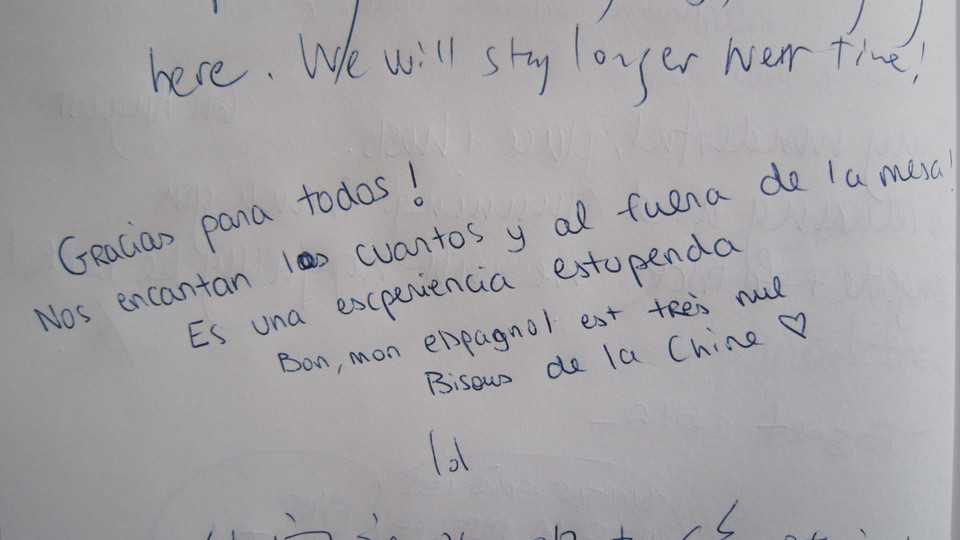 here. We will stay longer next time!
Gracias para todos!
Nos encantan los cuartos y al fuera de la mesa!
Es una escperiencia estupenda
Bon, mon espagnol est très nul
Bisous de la Chine ♡
lol